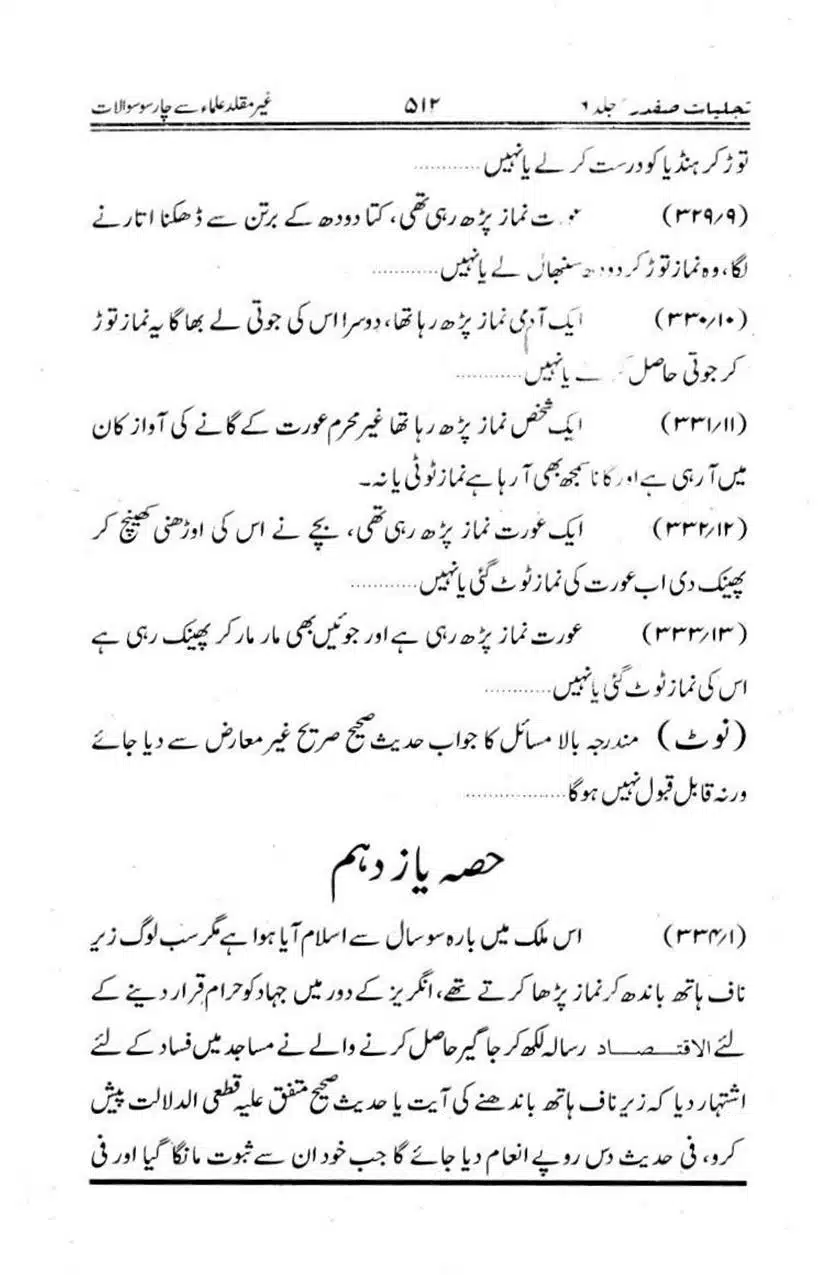 تجلیات صفدر جلد ۶ ۵۱۲ غیر مقلد علماء سے چار سو سوالات
توڑ کر ہنڈیا کو درست کر لے یا نہیں ............
(۳۲۹/۹) عورت نماز پڑھ رہی تھی، کتا دودھ کے برتن سے ڈھکنا اتارنے
لگا، وہ نماز توڑ کر دودھ سنبھال لے یا نہیں ............
(۳۳۰/۱۰) ایک آدمی نماز پڑھ رہا تھا، دوسرا اس کی جوتی لے بھاگا یہ نماز توڑ
کر جوتی حاصل کرے یا نہیں ............
(۳۳۱/۱۱) ایک شخص نماز پڑھ رہا تھا غیر محرم عورت کے گانے کی آواز کان
میں آ رہی ہے اور گانا سمجھ بھی آ رہا ہے نماز ٹوٹی یا نہ۔
(۳۳۲/۱۲) ایک عورت نماز پڑھ رہی تھی، بچے نے اس کی اوڑھنی کھینچ کر
پھینک دی اب عورت کی نماز ٹوٹ گئی یا نہیں ............
(۳۳۳/۱۳) عورت نماز پڑھ رہی ہے اور جوئیں بھی مار مار کر پھینک رہی ہے
اس کی نماز ٹوٹ گئی یا نہیں ............
(نوٹ) مندرجہ بالا مسائل کا جواب حدیث صحیح صریح غیر معارض سے دیا جائے
ورنہ قابل قبول نہیں ہوگا ..................
حصہ یازدہم
(۳۳۴/۱) اس ملک میں بارہ سو سال سے اسلام آیا ہوا ہے مگر سب لوگ زیر
ناف ہاتھ باندھ کر نماز پڑھا کرتے تھے، انگریز کے دور میں جہاد کو حرام قرار دینے کے
لئے الاقتصاد رسالہ لکھ کر جاگیر حاصل کرنے والے نے مساجد میں فساد کے لئے
اشتہار دیا کہ زیر ناف ہاتھ باندھنے کی آیت یا حدیث صحیح متفق علیہ قطعی الدلالت پیش
کرو، فی حدیث دس روپے انعام دیا جائے گا جب خود ان سے ثبوت مانگا گیا اور فی